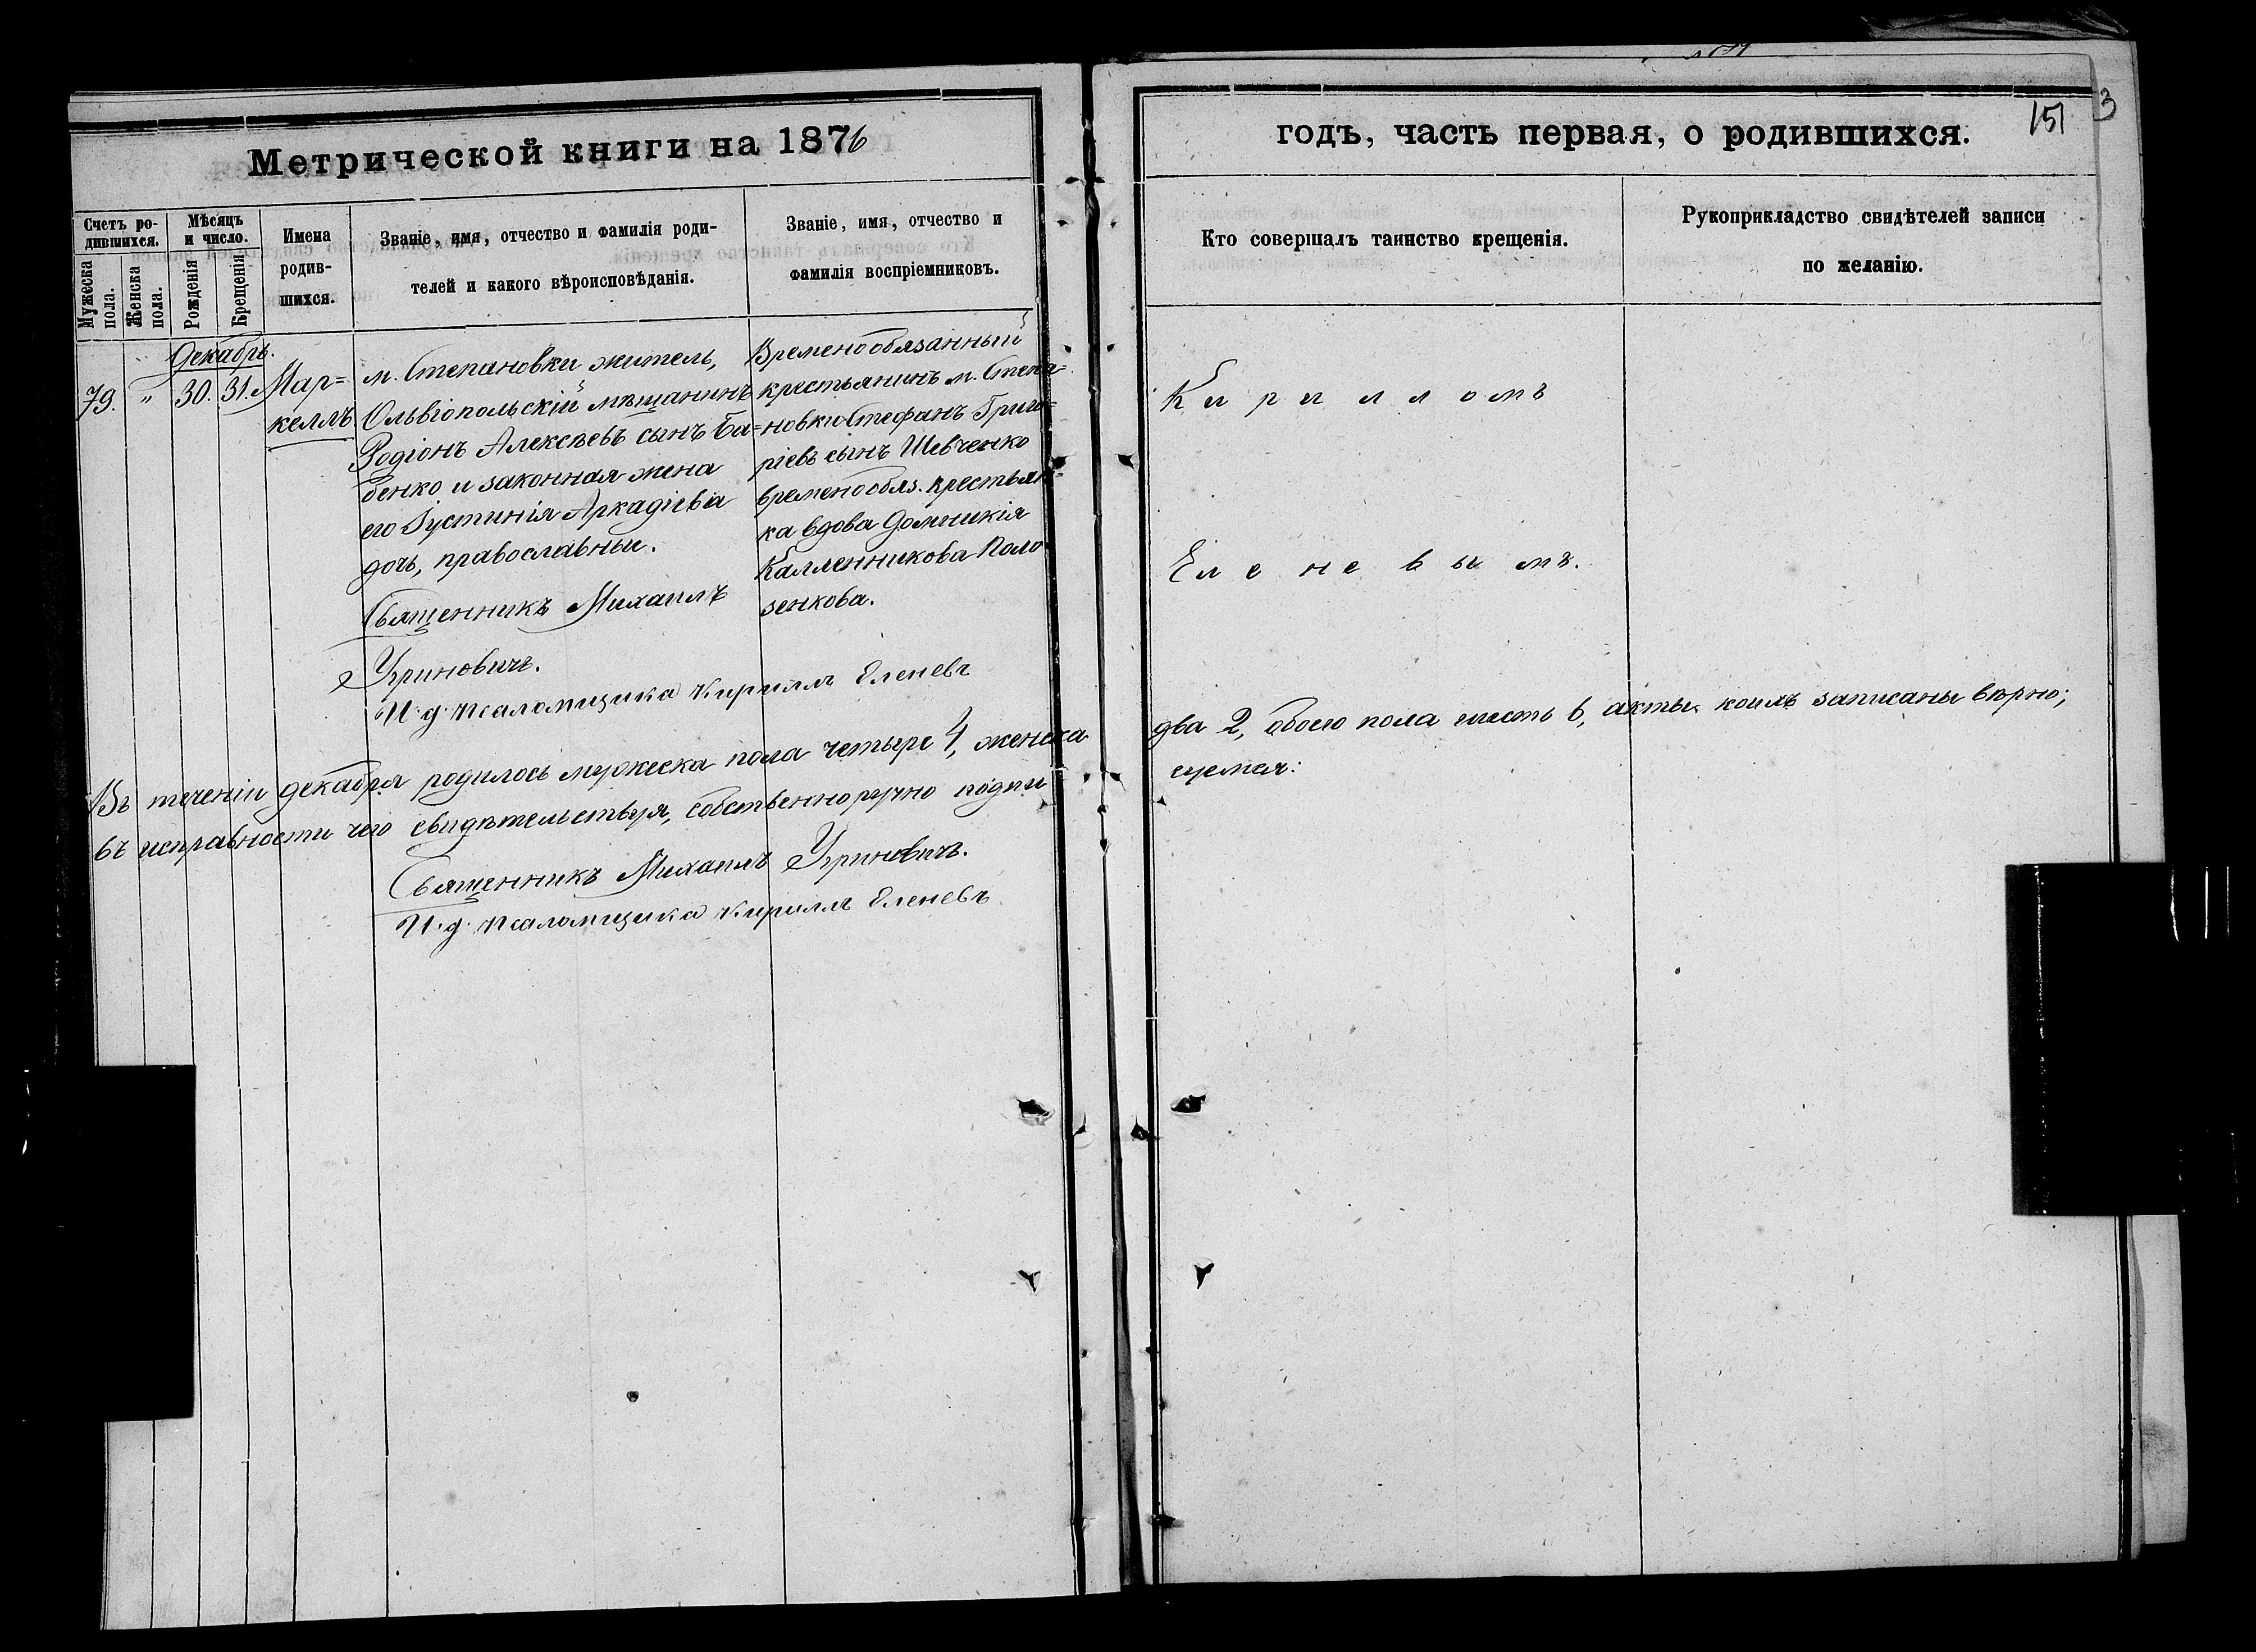 Метрической книги на 1876
Счетъ ро-
дившихся.
Мужеска
пола.
Женска
пола.
Мѣсяцъ
и число.
Рожденія
Крещенія
Имена
родив-
шихся.
Званіе, имя, отчество и фамилія роди-
телей и какого вѣроисповѣданія.
Званіе, имя, отчество и
фамилія воспріемниковъ.
Декабрь.
79. " 30. 31. Мар=
келлъ.
м. Степановки житель,
Ольвіопольскій мѣщанинъ
Родіонъ Алексѣевъ сынъ Ба=
бенко и законная жена
его Іустинія Аркадіева
дочь, православные.
Священникъ Михаилъ
Угриновичъ.
И. д. псаломщика Кириллъ Еленевъ
Временообязанный
крестьянинъ м. Степа=
новки Стефанъ Григо=
ріевъ сынъ Шевченко
временообяз. крестьян=
ка вдова Домникія
Калленникова Поло
зенкова.
Въ теченіи декабря родилось мужеска пола четыре 4, женска
въ исправности чего свидѣтельствуя, собственноручно подпи
Священникъ Михаилъ Угриновичъ.
И. д. псаломщика Кириллъ Еленевъ
годъ, часть первая, о родившихся.
151
3
Кто совершалъ таинство крещенія.
Рукоприкладство свидѣтелей записи
по желанію.
Кирилломъ
Еленевымъ.
два 2, обоего пола шесть 6, акты коихъ записаны вѣрно;
суемся: